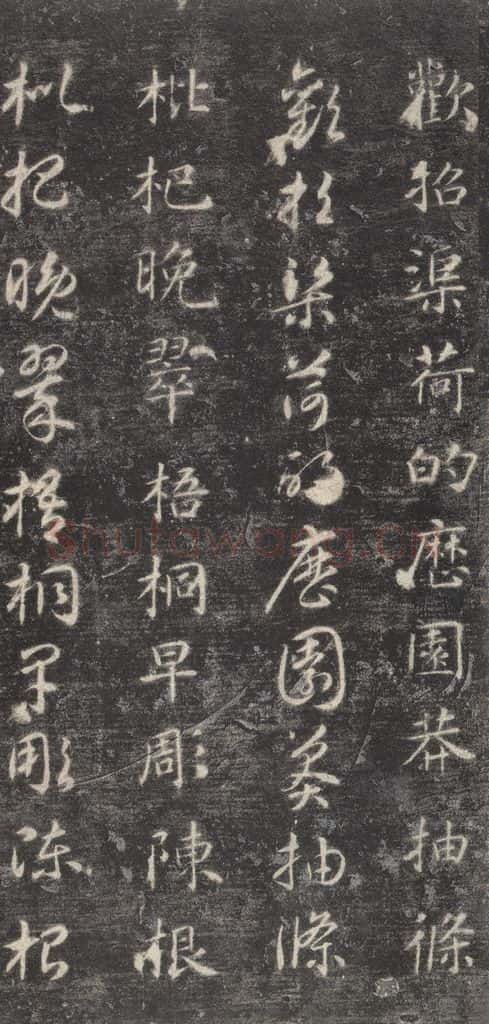 歡招渠荷的歷園莽抽條
歡招渠荷的歷園莽抽條
枇杷晚翠梧桐早彫陳根
枇杷晚翠梧桐早彫陳根
Shufawang.cn